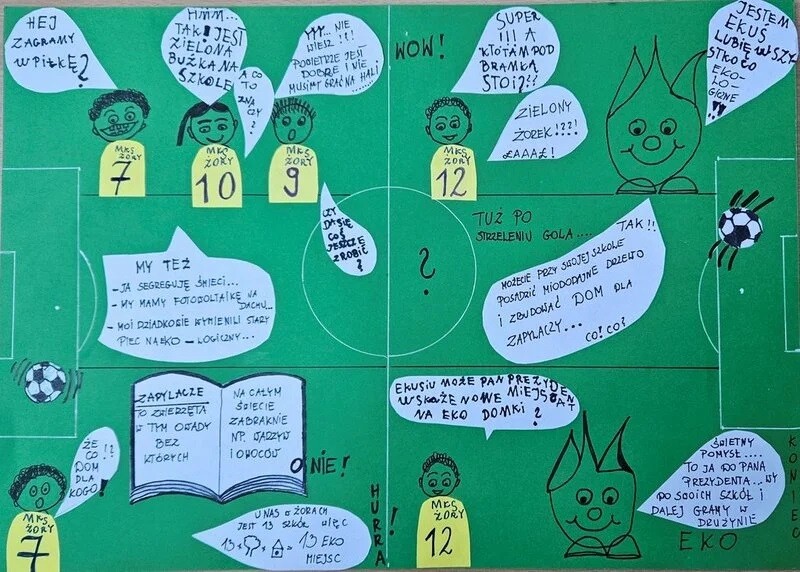 HEJ
ZAGRAMY
W PIŁKĘ?
HMM...
TAK! JEST
ZIELONA
BUŹKA NA
SZKOLE
A CO
TO
ZNA
CZY
?
YYY... NIE
WIESZ!!!
POWIETRZE JEST
DOBRE I NIE
MUSIMY GRAĆ NA HALI
WOW!
SUPER
!!! A
KTO TAM POD
BRAMKĄ
STOI??
ZIELONY
ŻOREK!??!
ŁAAAŁ!
JESTEM
EKUŚ
LUBIĘ WSZY
STKO CO
EKO-
LO-
GICZNE
!!
MKS
ŻORY
7
MKS
ŻORY
10
MKS
ŻORY
9
MKS
ŻORY
12
CZY
DA SIĘ
COŚ
JESZCZE
ZROBIĆ
?
MY TEŻ
- JA SEGREGUJĘ ŚMIECI...
- MY MAMY FOTOWOLTAIKĘ NA
DACHU...
- MOI DZIADKOWIE WYMIENILI STARY
PIEC NA EKO - LOGICZNY...
?
TUŻ PO
STRZELENIU GOLA....
TAK!!
MOŻECIE PRZY SWOJEJ SZKOLE
POSADZIĆ MIODODAJNE DRZEWO
I ZBUDOWAĆ DOM DLA
ZAPYLACZY...
CO! CO?
ŻE
CO!?
DOM
DLA
KOGO!
MKS
ŻORY
7
ZAPYLACZE
TO ZWIERZĘTA
W TYM OWADY
BEZ
KTÓRYCH
NA CAŁYM
ŚWIECIE
ZABRAKNIE
NP. WARZYW
I OWOCÓW
O NIE!
U NAS W ŻORACH
JEST 13 SZKÓŁ WIĘC
13 x + = 13 EKO
MIEJSC
HURRA!
EKUSIU MOŻE PAN PREZYDENT
WSKAŻE NOWE MIEJSCA
NA EKO DOMKI?
MKS
ŻORY
12
ŚWIETNY
POMYSŁ....
TO JA DO PANA
PREZYDENTA...WY
DO SWOICH SZKÓŁ I
DALEJ GRAMY W
DRUŻYNIE
EKO
KONIEC